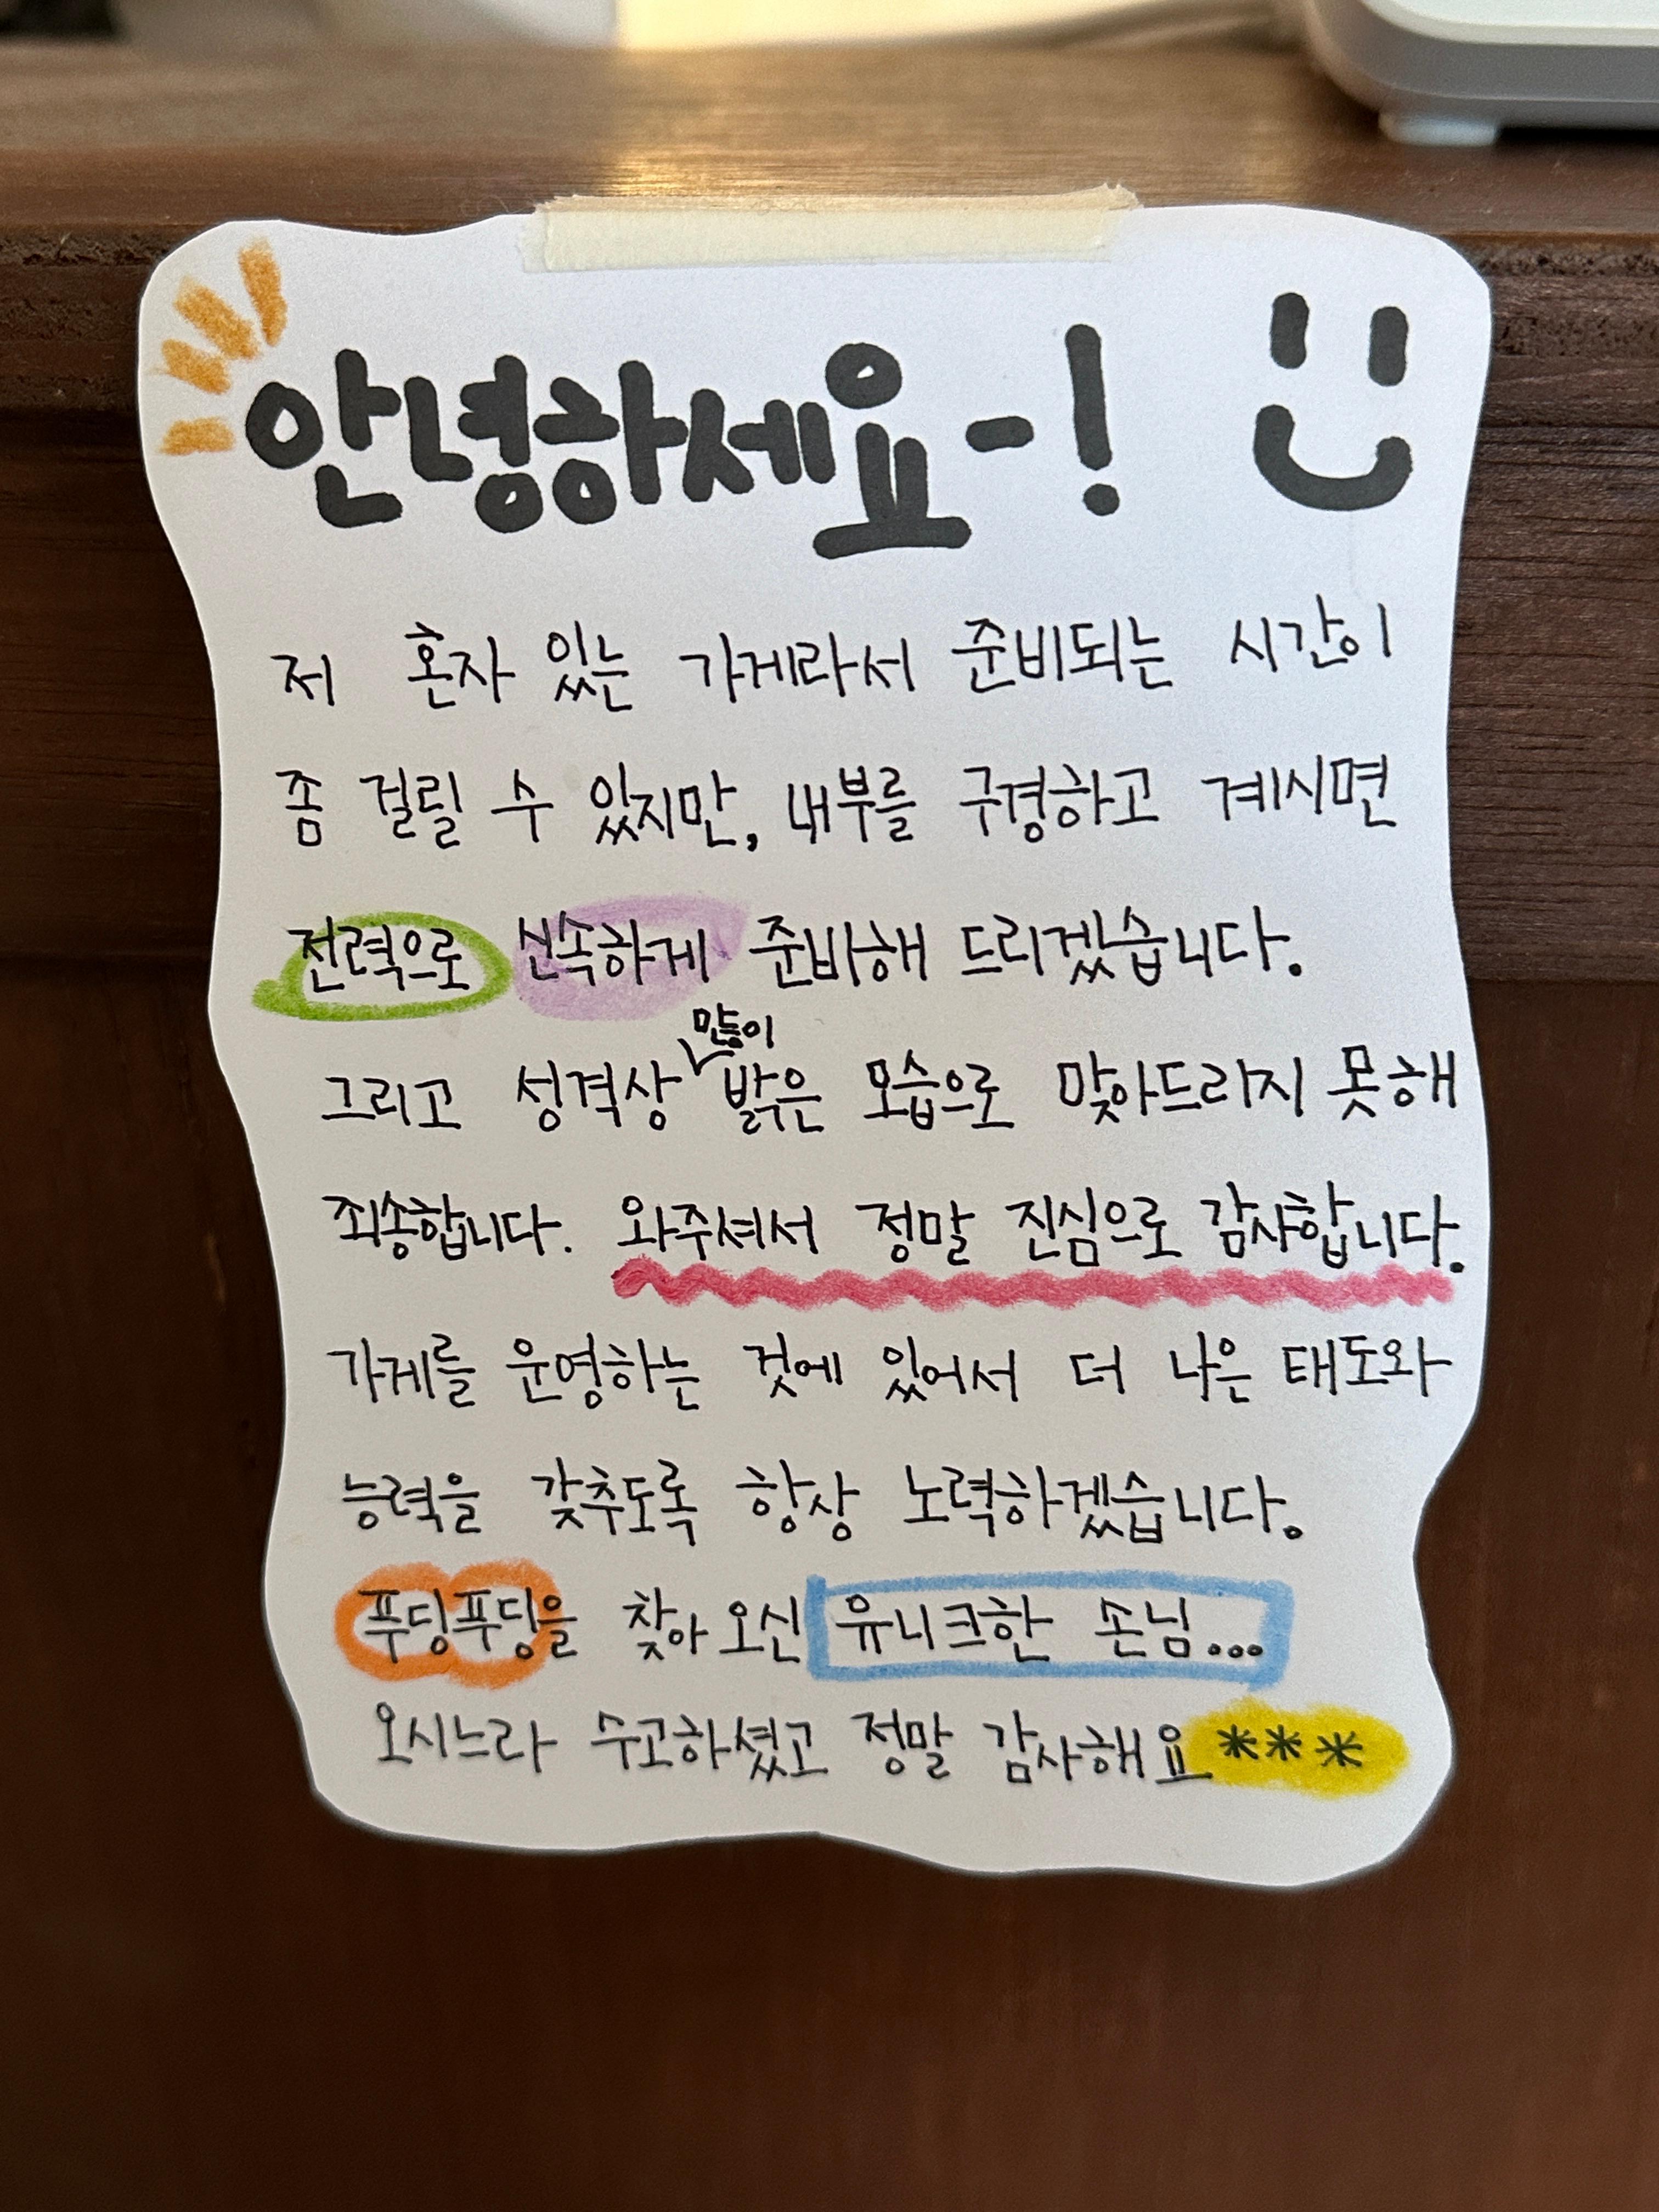 안녕하세요-!
저 혼자 있는 가게라서 준비되는 시간이
좀 걸릴 수 있지만, 내부를 구경하고 계시면
전력으로 신속하게 준비해 드리겠습니다.
많이
그리고 성격상 밝은 모습으로 맞아드리지 못해
죄송합니다. 와주셔서 정말 진심으로 감사합니다.
가게를 운영하는 것에 있어서 더 나은 태도와
능력을 갖추도록 항상 노력하겠습니다.
푸딩푸딩을 찾아오신 유니크한 손님...
오시느라 수고하셨고 정말 감사해요***